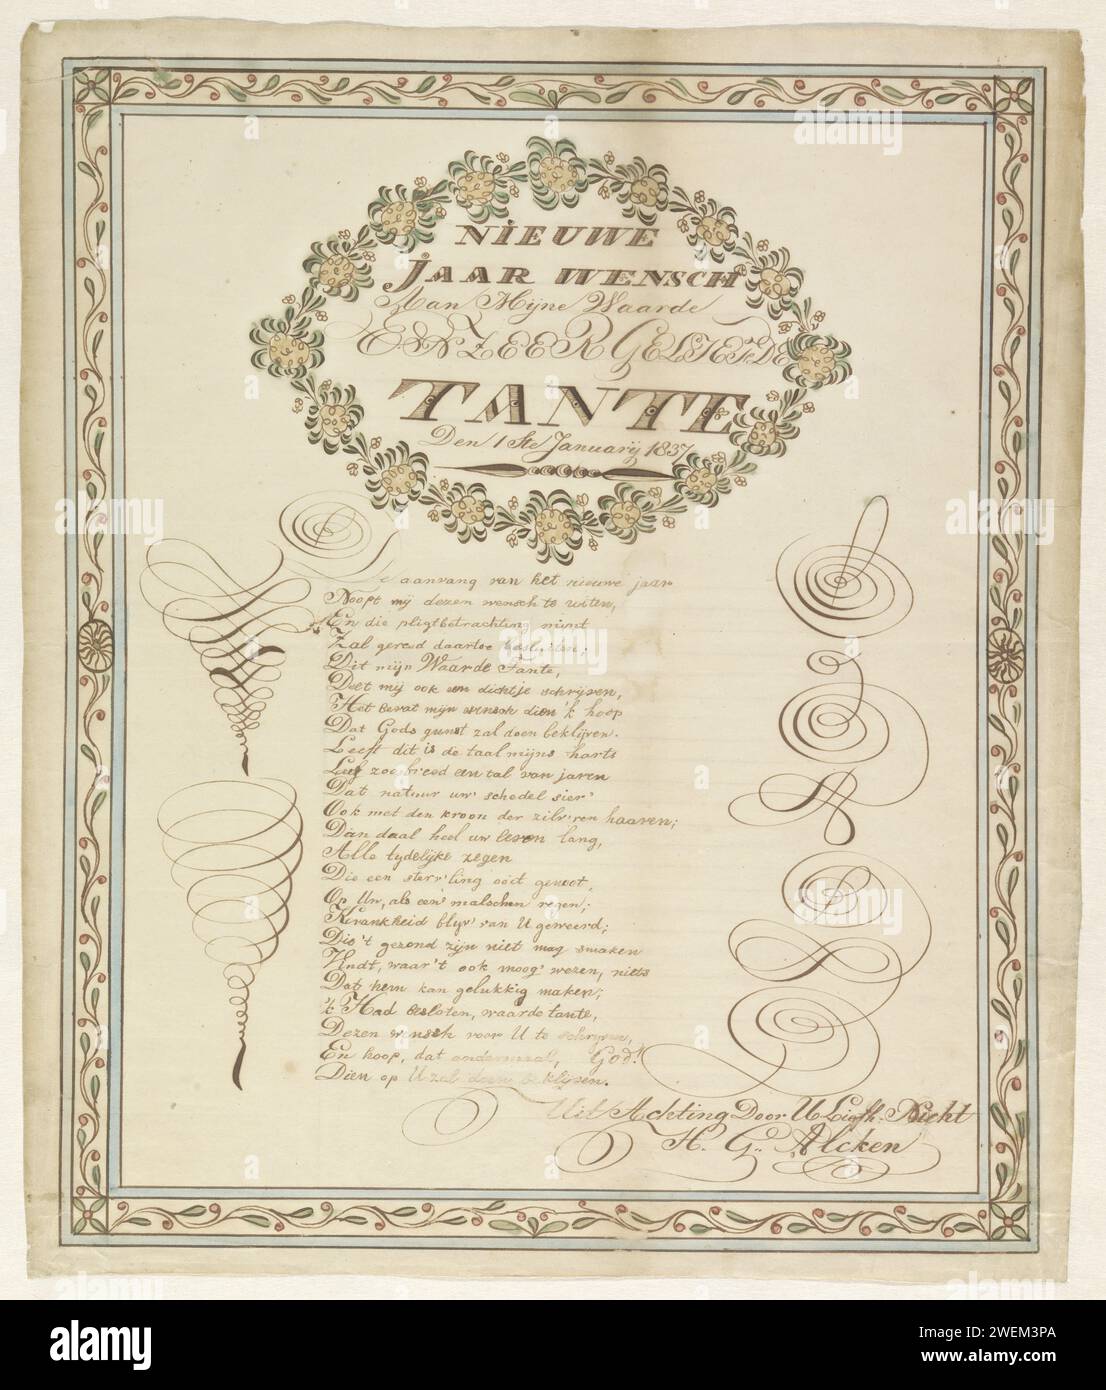 NIEUWE
JAAR WENSCH
Aan Mijne Waarde
EN ZEER GELIEFDE
TANTE
Den 1ste Januarij 1837
De aanvang van het nieuwe jaar
Noopt mij dezen wensch te uiten,
En die pligtbetrachting
Zal gereed daartoe besluiten;
Dit mijn Waarde Tante,
Doet mij ook een dichtje schrijven,
Het bevat mijn wensch dien 'k hoop
Dat Gods gunst zal doen beklijven.
Leeft dit is de taal mijns harts
Leef zoo breed een tal van jaren
Dat natuur uw' schedel sier'
Ook met den kroon der zilv'ren haaren;
Dan daal heel uw leven lang,
Alle tijdelijke zegen
Die een sterv'ling ooit genoot,
Op Uw, als een malschen regen;
Krankheid blijv' van U geweerd;
Die 't gezond zijn niet mag smaken
Vindt, waar 't ook moog' wezen, niets
Dat hem kan gelukkig maken;
'k Had besloten, waarde tante,
Dezen wensch voor U te schrijven,
En hoop, dat andermaal, God!
Dien op U zal doen beklijven.
Uit Achting Door U Liefh. Nicht
H. G. Alcken
alamy
Image ID: 2WEM3PA
www.alamy.com